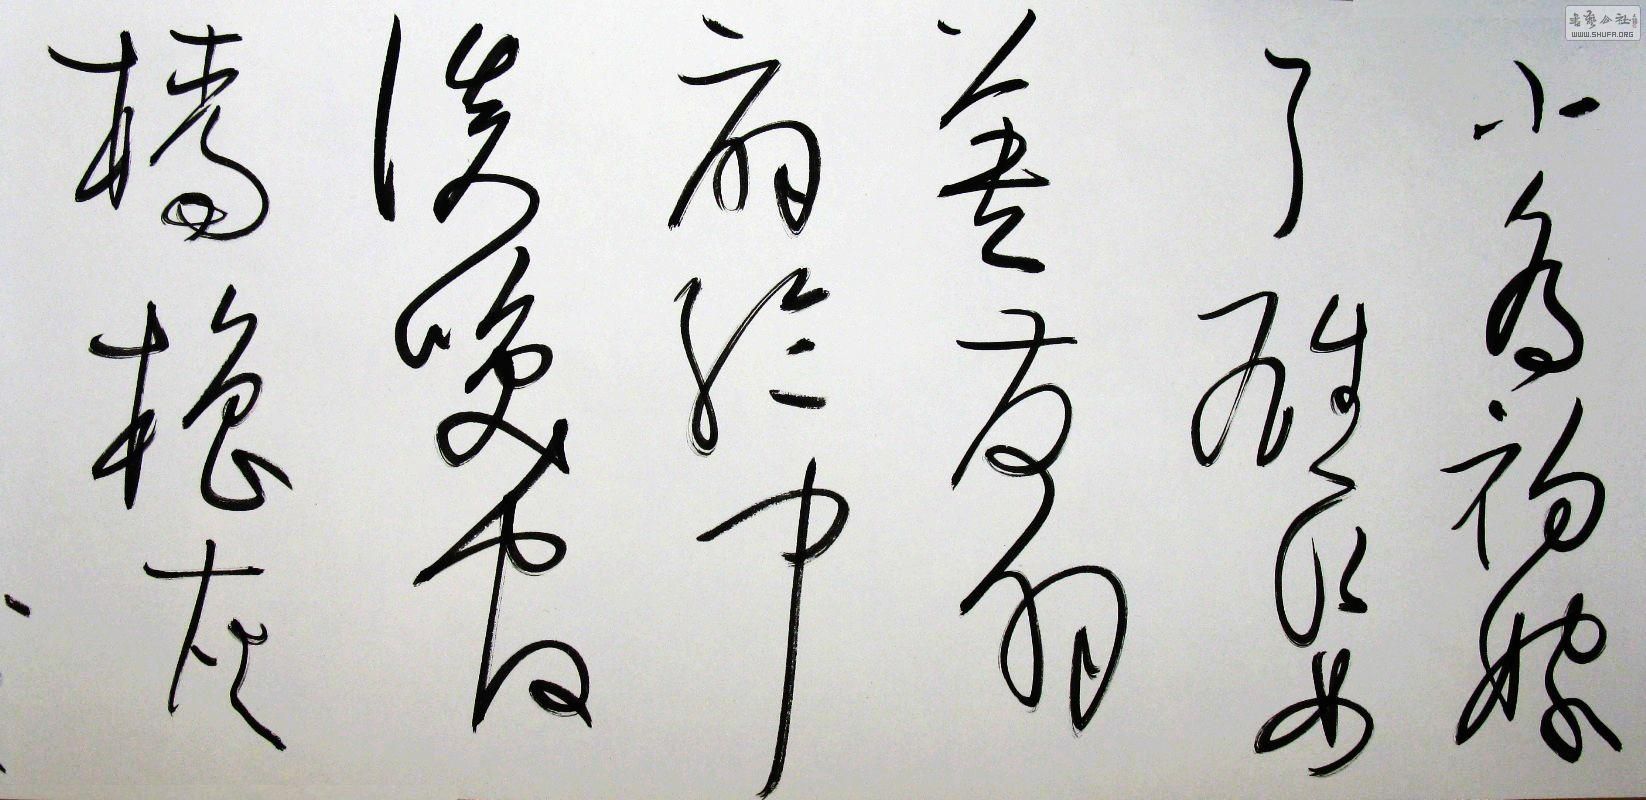 小喬初嫁
了雄姿
英發羽
扇綸巾
談笑間
檣櫓灰
書藝公社
WWW.SHUFA.ORG